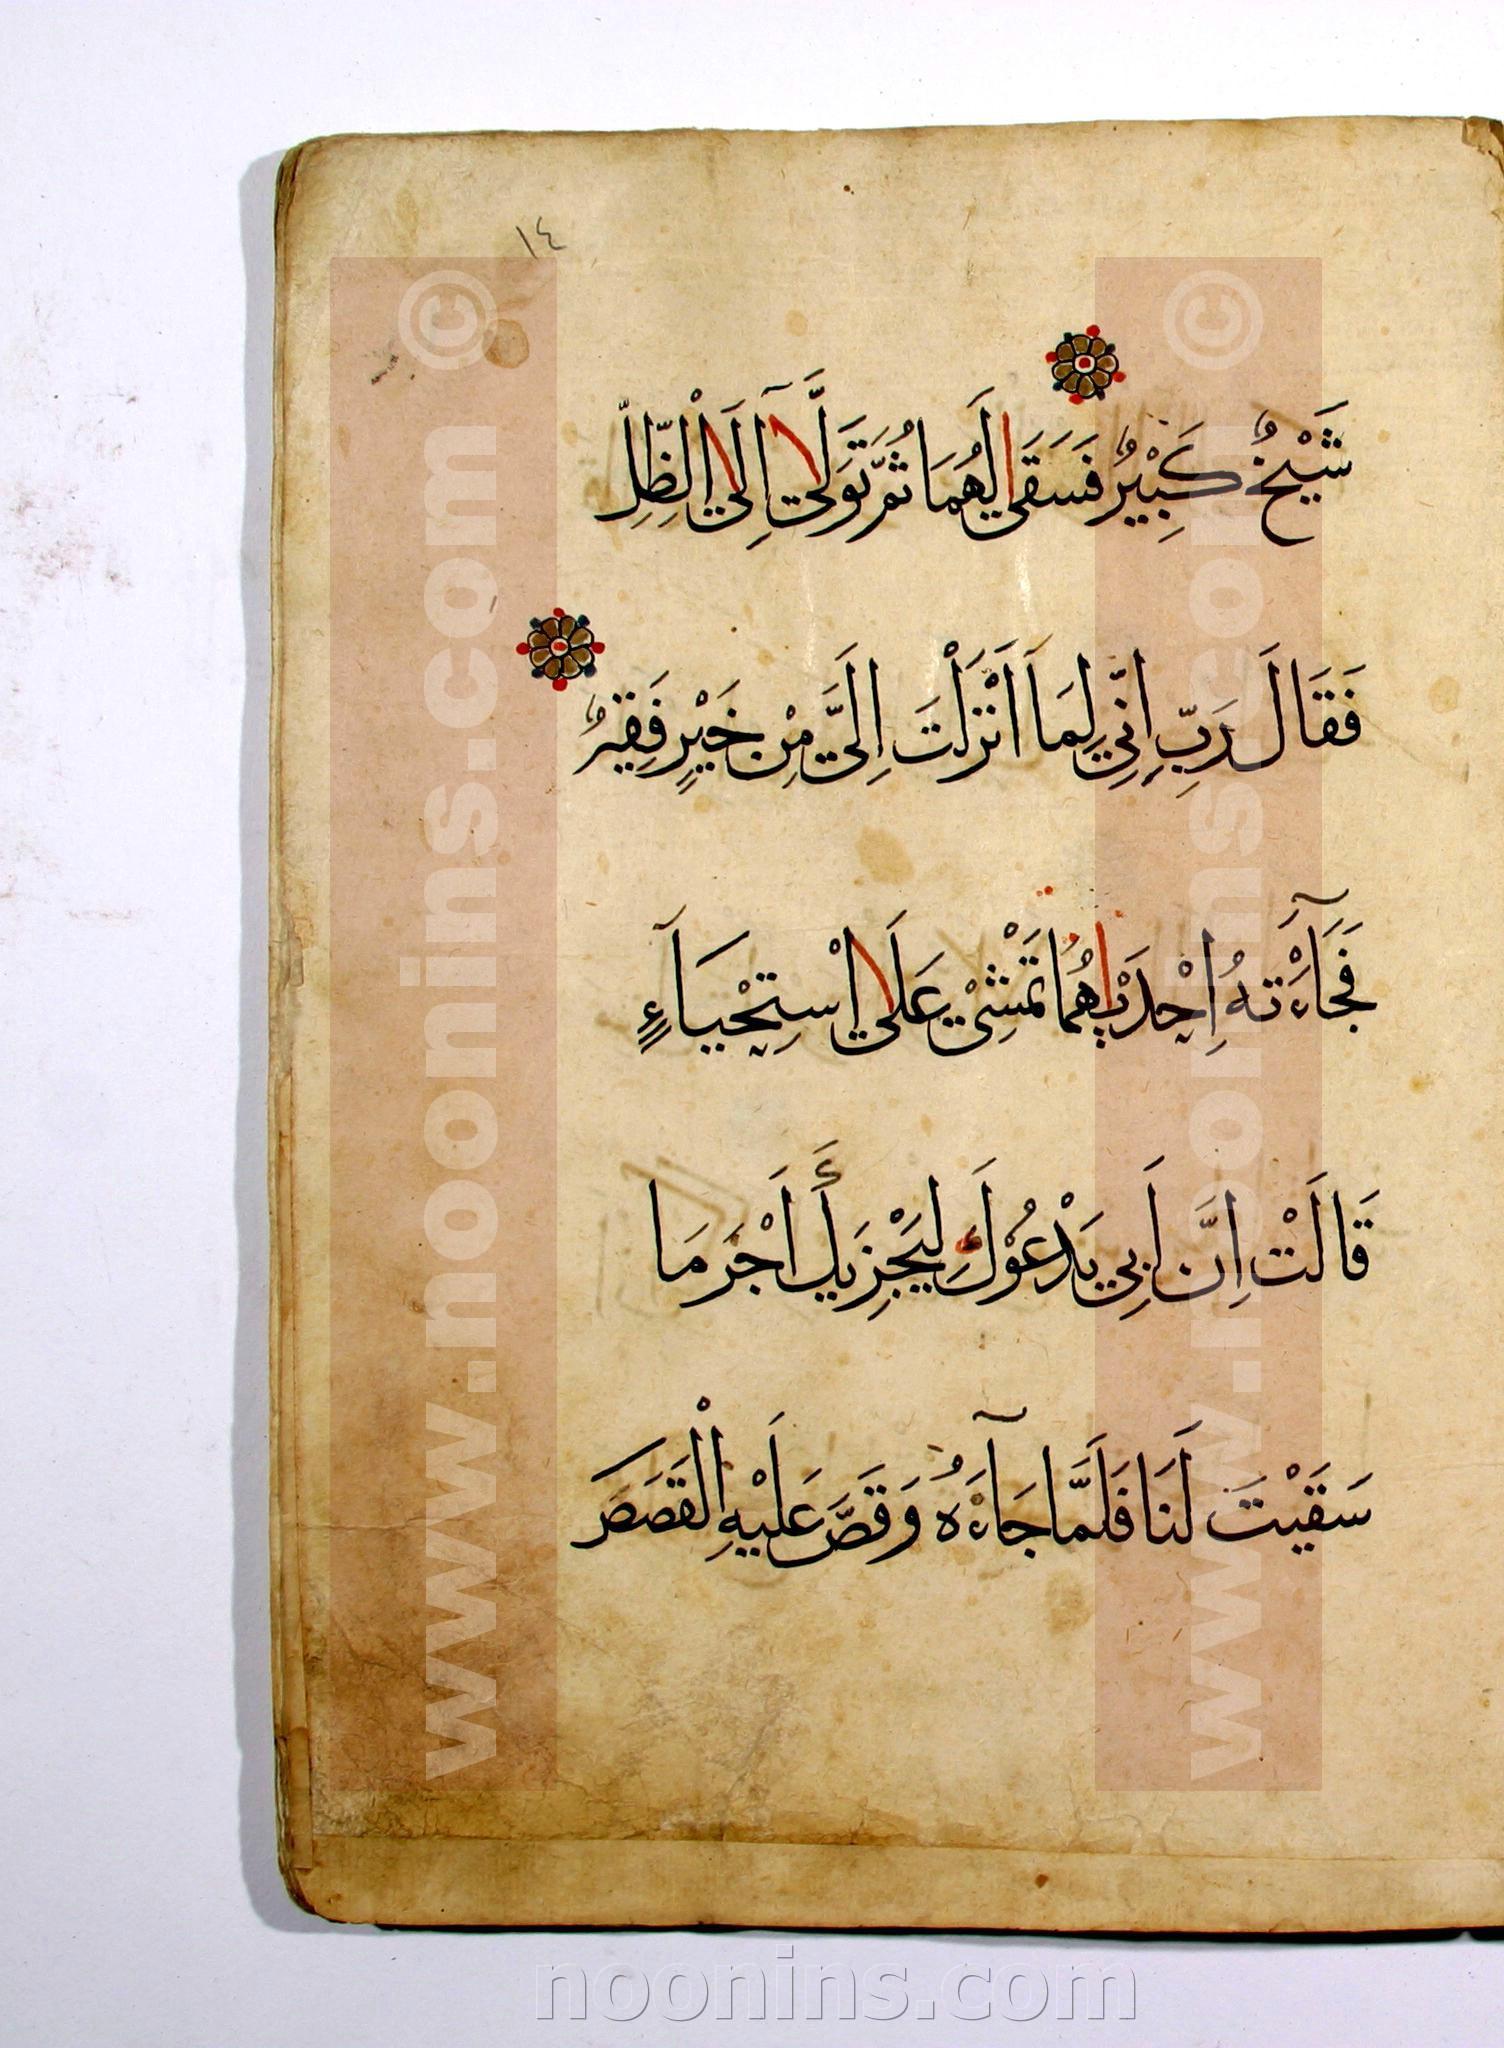 ١٤
شَيْخٌ كَبِيْرٌ فَسَقَىٰ لَهُمَا ثُمَّ تَوَلَّىٰٓ اِلَى الْظِّلِّ
فَقَالَ رَبِّ اِنِّي لِمَآ اَنْزَلْتَ اِلَيَّ مِنْ خَيْرٍ فَقِيْرٌ
فَجَآءَتْهُ اِحْدَىٰهُمَا تَمْشِيْ عَلَى اسْتِحْيَآءٍ
قَالَتْ اِنَّ اَبِي يَدْعُوْكَ لِيَجْزِيَكَ اَجْرَ مَا
سَقَيْتَ لَنَا فَلَمَّا جَآءَهُ وَقَصَّ عَلَيْهِ الْقَصَصَ
www.noonins.com ©
www.noonins.com ©
noonins.com